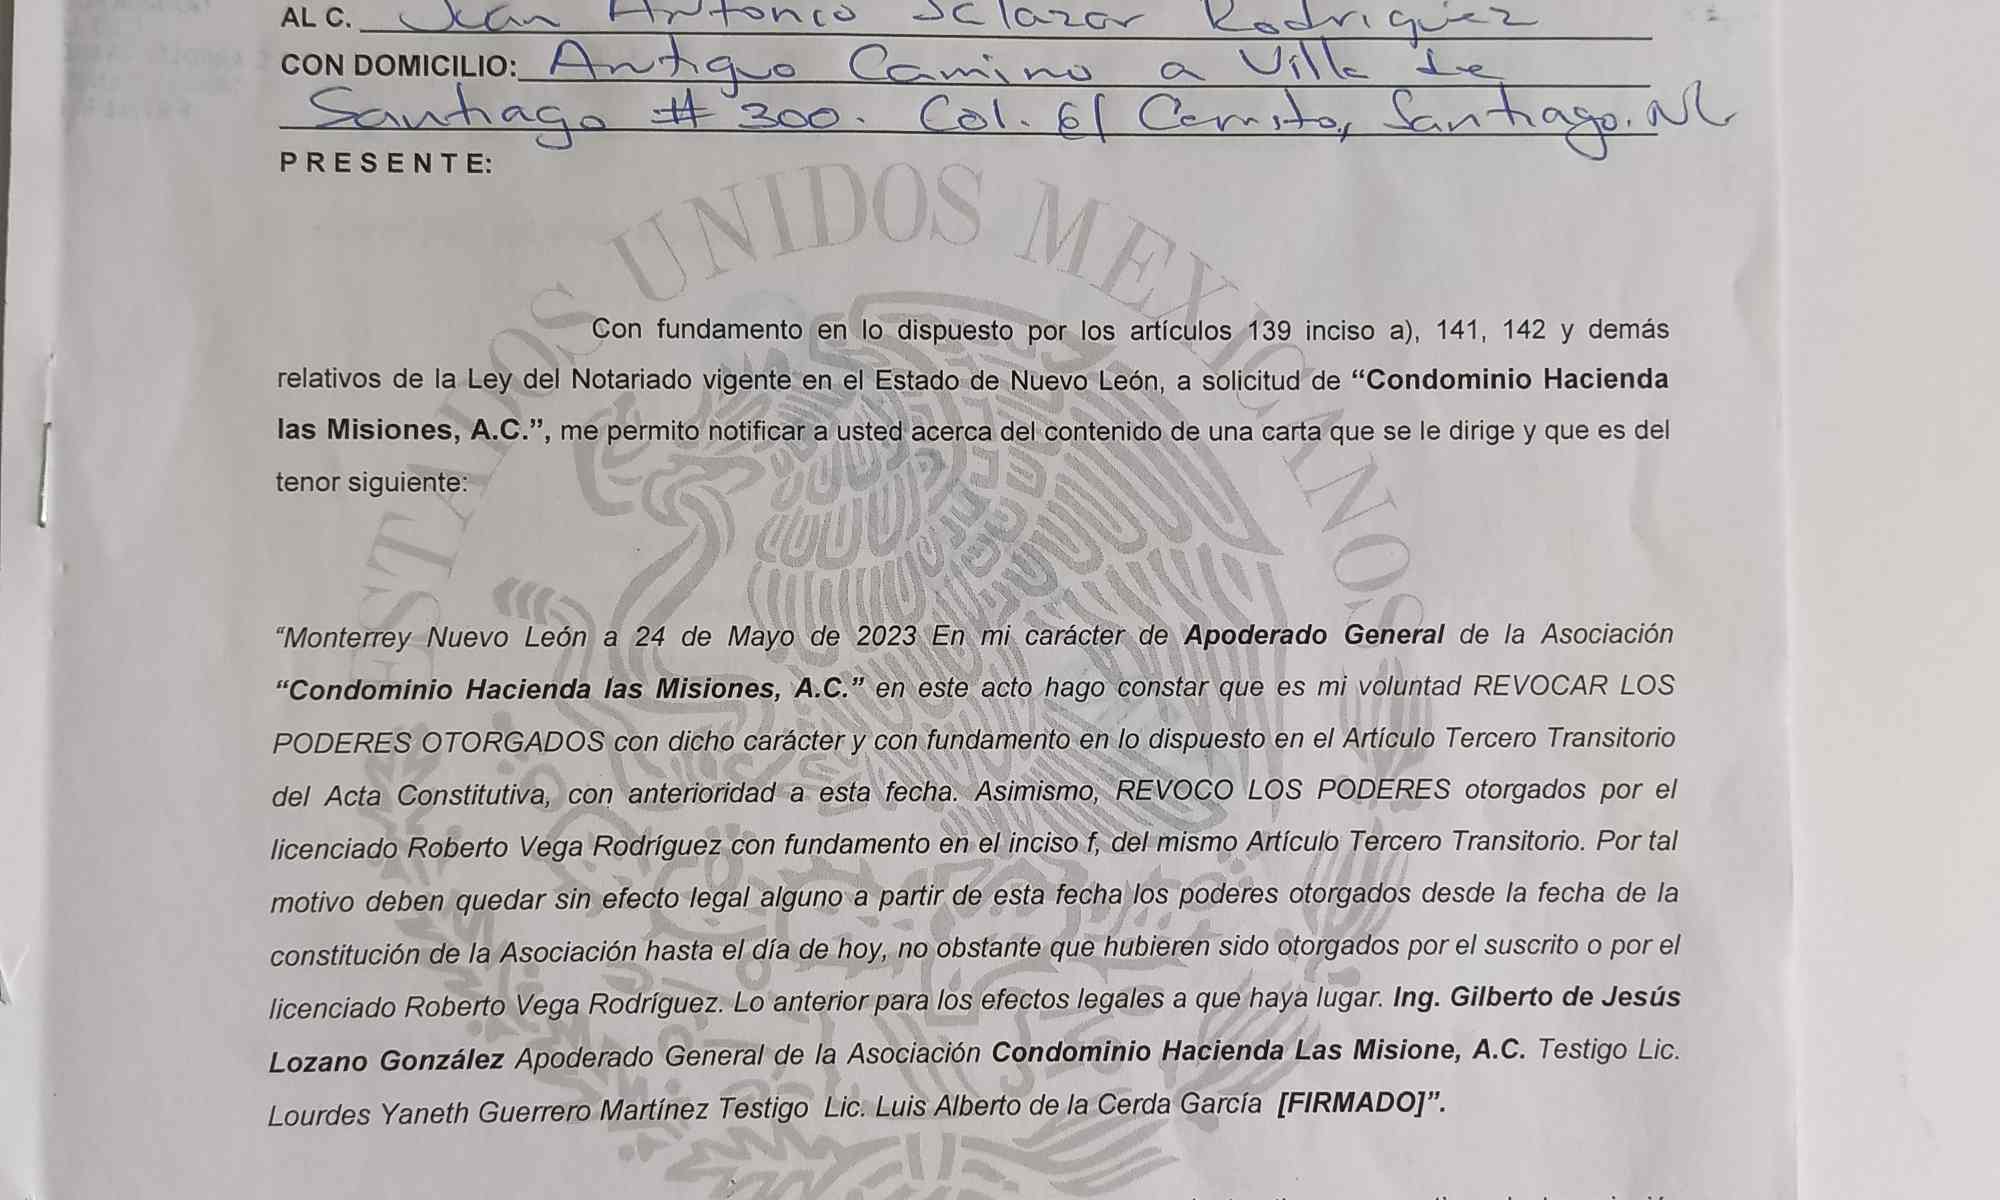 AL C. Juan Antonio Salazar Rodriguez
CON DOMICILIO: Antiguo Camino a Villa de
Santiago # 300. Col. El Cerrito, Santiago. NL
P R E S E N T E:
ESTADOS UNIDOS MEXICANOS
Con fundamento en lo dispuesto por los artículos 139 inciso a), 141, 142 y demás
relativos de la Ley del Notariado vigente en el Estado de Nuevo León, a solicitud de “Condominio Hacienda
las Misiones, A.C.”, me permito notificar a usted acerca del contenido de una carta que se le dirige y que es del
tenor siguiente:
“Monterrey Nuevo León a 24 de Mayo de 2023 En mi carácter de Apoderado General de la Asociación
“Condominio Hacienda las Misiones, A.C.” en este acto hago constar que es mi voluntad REVOCAR LOS
PODERES OTORGADOS con dicho carácter y con fundamento en lo dispuesto en el Artículo Tercero Transitorio
del Acta Constitutiva, con anterioridad a esta fecha. Asimismo, REVOCO LOS PODERES otorgados por el
licenciado Roberto Vega Rodríguez con fundamento en el inciso f, del mismo Artículo Tercero Transitorio. Por tal
motivo deben quedar sin efecto legal alguno a partir de esta fecha los poderes otorgados desde la fecha de la
constitución de la Asociación hasta el día de hoy, no obstante que hubieren sido otorgados por el suscrito o por el
licenciado Roberto Vega Rodríguez. Lo anterior para los efectos legales a que haya lugar. Ing. Gilberto de Jesús
Lozano González Apoderado General de la Asociación Condominio Hacienda Las Misione, A.C. Testigo Lic.
Lourdes Yaneth Guerrero Martínez Testigo Lic. Luis Alberto de la Cerda García [FIRMADO]”.